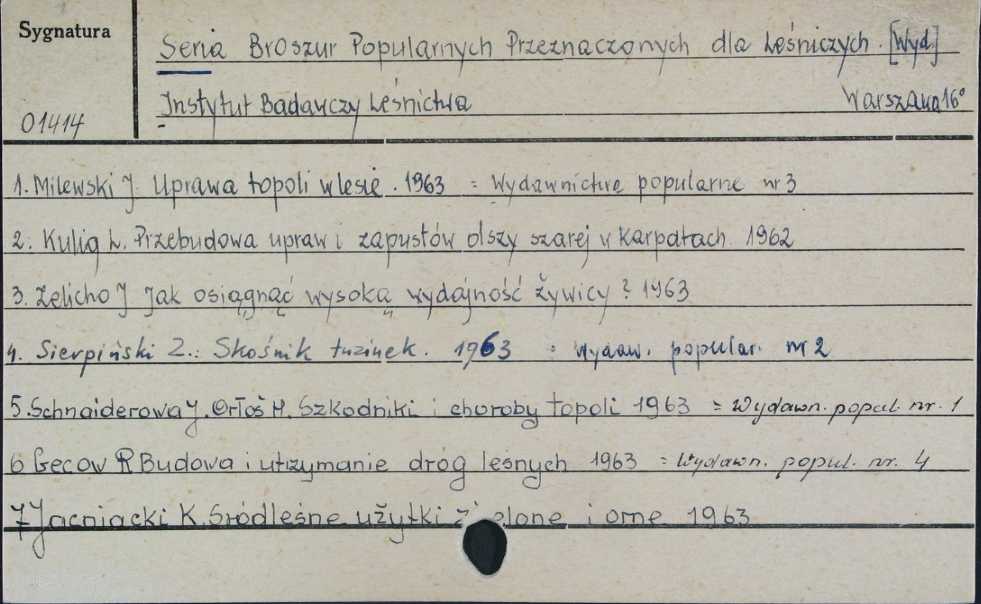 Sygnatura
Seria Broszur Popularnych Przeznaczonych dla Leśniczych. [Wyd.]
Instytut Badawczy Leśnictwa Warszawa 16°
01414
1. Milewski J. Uprawa topoli w lesie. 1963 = Wydawnictwo popularne nr 3
2. Kulig L. Przebudowa upraw i zapustów olszy szarej w Karpatach. 1962
3. Zelicho J Jak osiągnąć wysoką wydajność żywicy? 1963
4. Sierpiński Z.: Skośnik tuzinek. 1963 = Wydaw. popular. nr 2
5. Schnaiderowa J. Orłoś H. Szkodniki i choroby topoli 1963 = Wydawn. popul. nr. 1
6 Gecow R Budowa i utrzymanie dróg leśnych 1963 = Wydawn. popul. nr. 4
7 Jacniacki K. Śródleśne użytki zielone i orne 1963